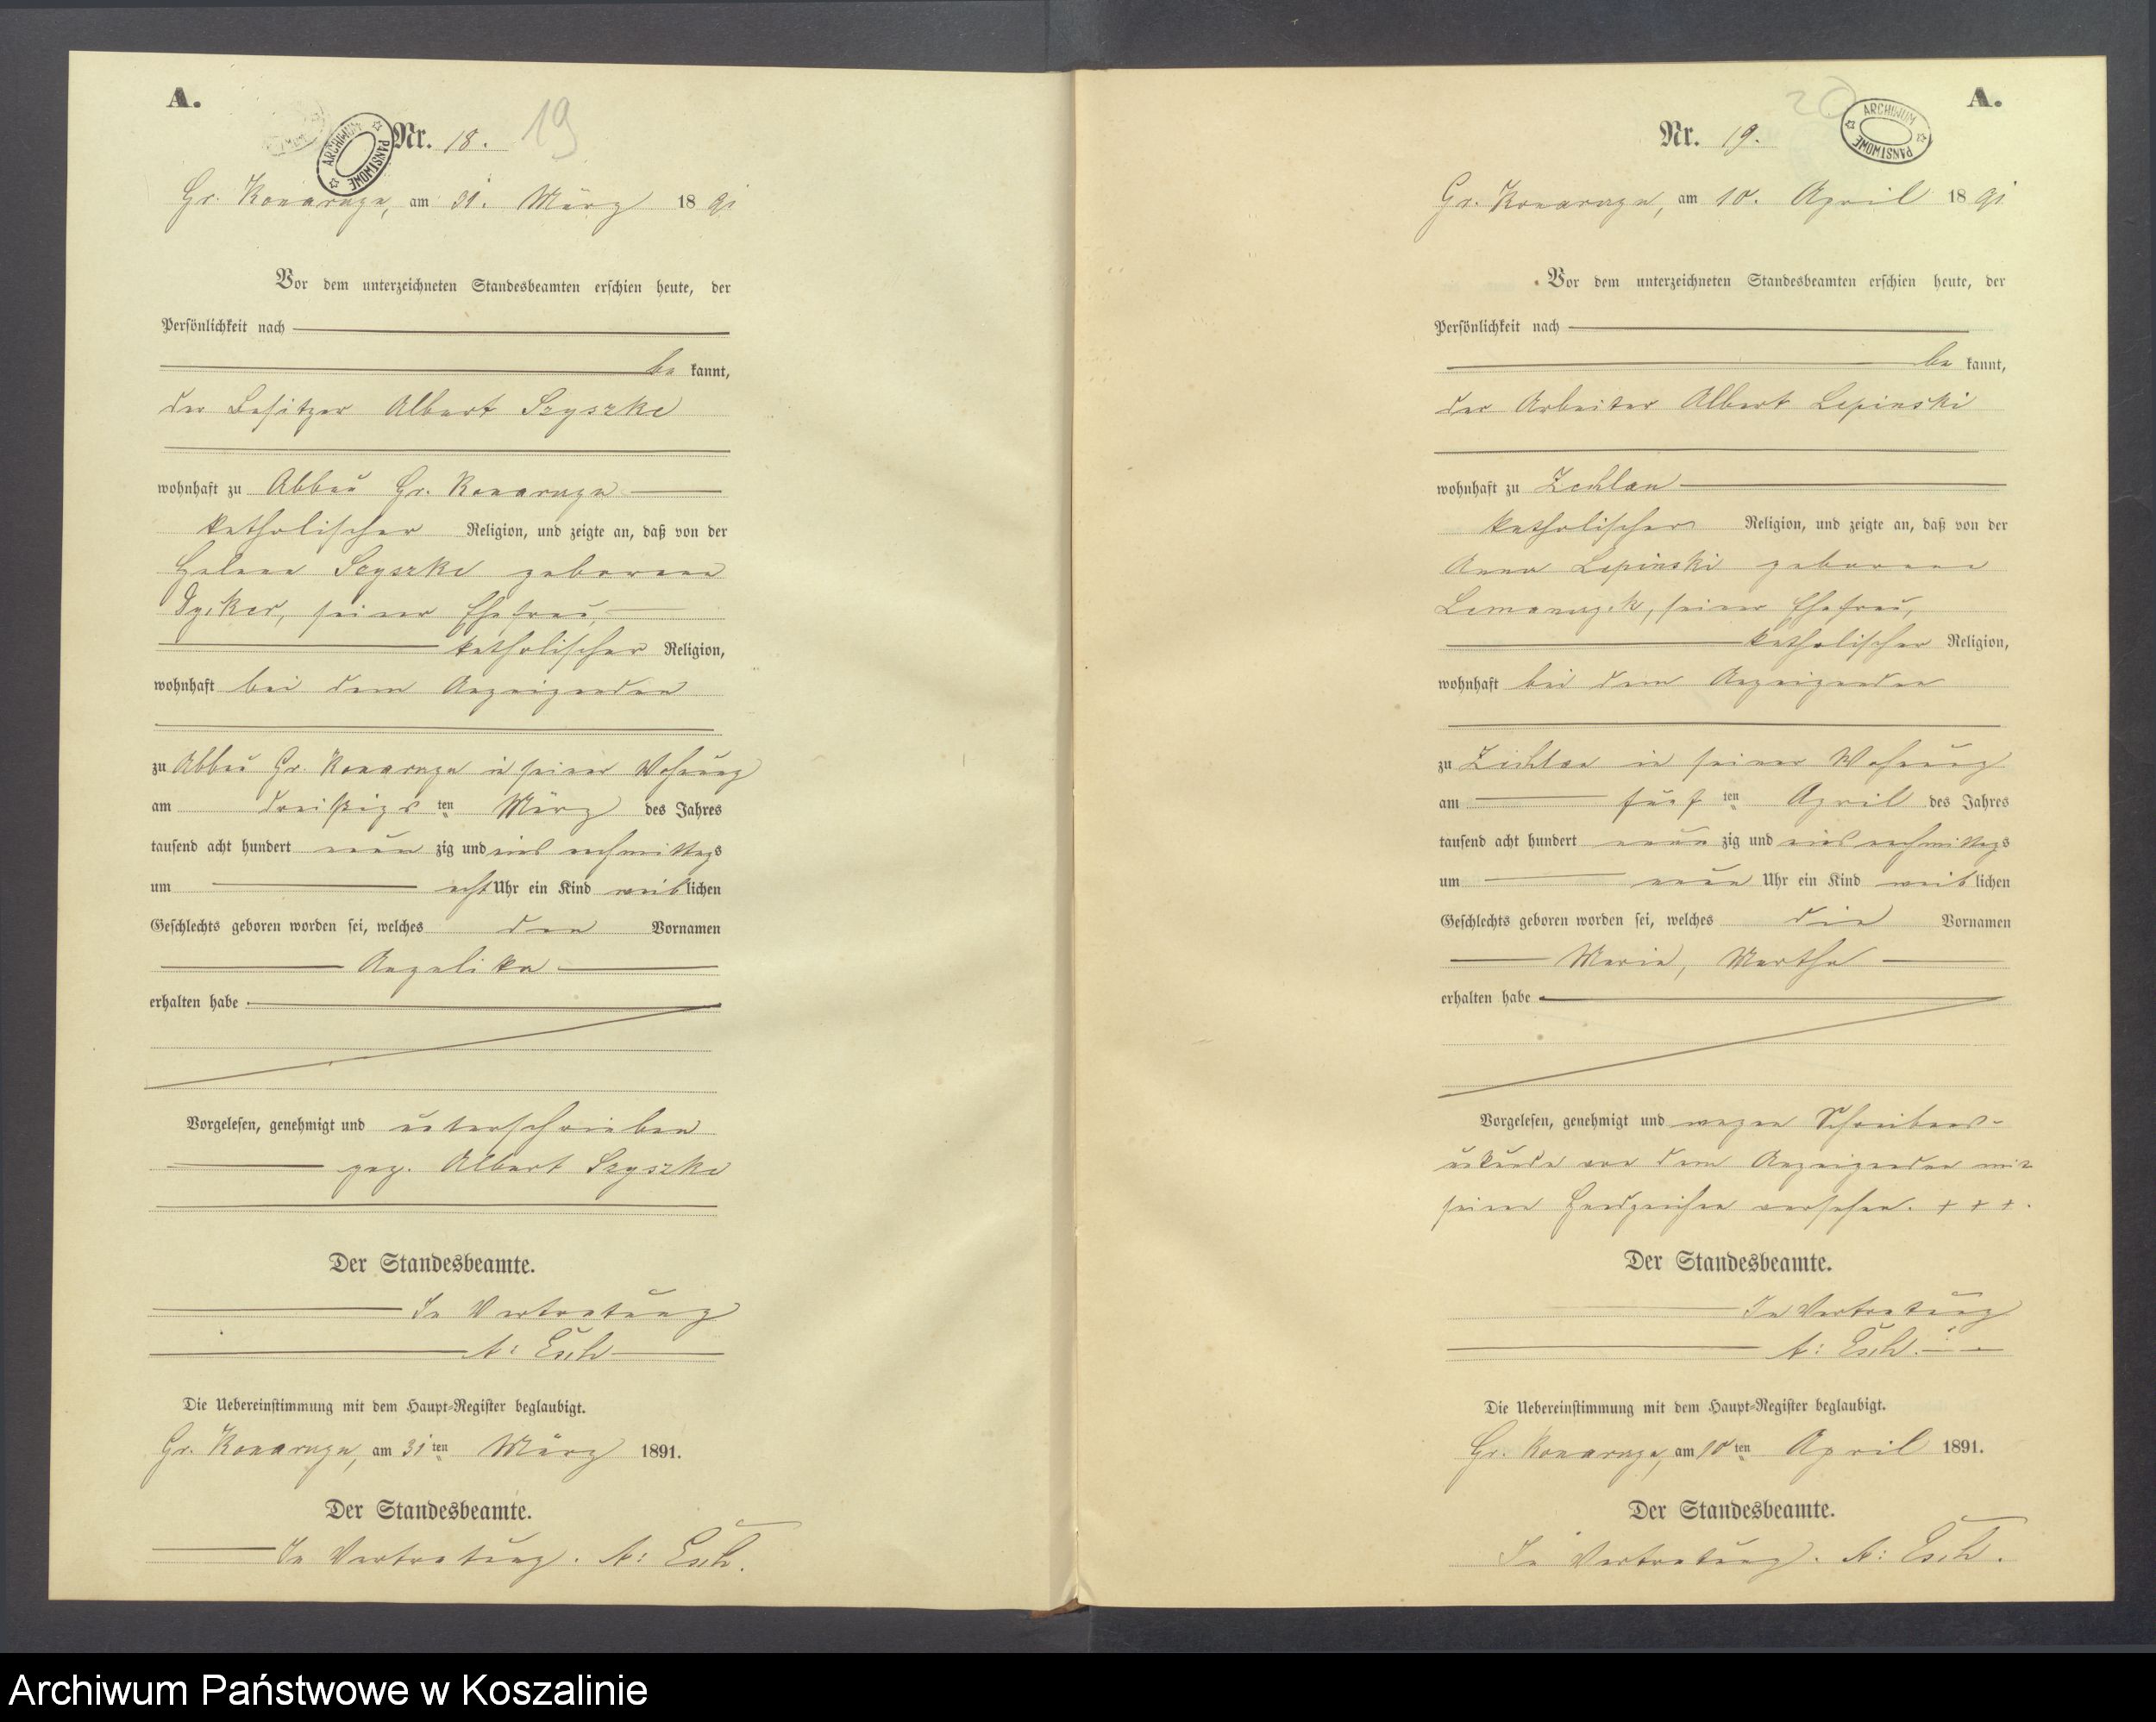 A.
ARCHIWUM PAŃSTWOWE
Nr. 18.
19
Gr. Konarzyn, am 31. März 1891
Vor dem unterzeichneten Standesbeamten erschien heute, der
Persönlichkeit nach
be kannt,
der Besitzer Albert Szyszke
wohnhaft zu Abbau Gr. Konarzyn
katholischer Religion, und zeigte an, daß von der
Helene Szyszke geborene
seiner Ehefrau,
katholischer Religion,
wohnhaft bei dem Anzeigenden
zu Abbau Gr. Konarzyn in seiner Wohnung
am dreißigsten März des Jahres
tausend acht hundert neun zig und eins nachmittags
um acht Uhr ein Kind weiblichen
Geschlechts geboren worden sei, welches den Vornamen
Angelika
erhalten habe
Vorgelesen, genehmigt und unterschrieben
gez. Albert Szyszke
Der Standesbeamte.
In Vertretung
A: Esch
Die Uebereinstimmung mit dem Haupt-Register beglaubigt.
Gr. Konarzyn, am 31ten März 1891.
Der Standesbeamte.
In Vertretung. A: Esch.
A.
20
ARCHIWUM PAŃSTWOWE
Nr. 19.
Gr. Konarzyn, am 10. April 1891
Vor dem unterzeichneten Standesbeamten erschien heute, der
Persönlichkeit nach
be kannt,
der Arbeiter Albert Lepinski
wohnhaft zu Zechlau
katholischer Religion, und zeigte an, daß von der
Anna Lepinski geborene
Lemanczyk, seiner Ehefrau,
katholischer Religion,
wohnhaft bei dem Anzeigenden
zu Zechlau in seiner Wohnung
am fünften April des Jahres
tausend acht hundert neun zig und eins nachmittags
um neun Uhr ein Kind weiblichen
Geschlechts geboren worden sei, welches die Vornamen
Maria, Martha
erhalten habe
Vorgelesen, genehmigt und wegen Schreibens-
unkunde von dem Anzeigenden mit
seinem Handzeichen versehen. + + +.
Der Standesbeamte.
In Vertretung
A: Esch.
Die Uebereinstimmung mit dem Haupt-Register beglaubigt.
Gr. Konarzyn, am 10ten April 1891.
Der Standesbeamte.
In Vertretung. A: Esch.
Archiwum Państwowe w Koszalinie